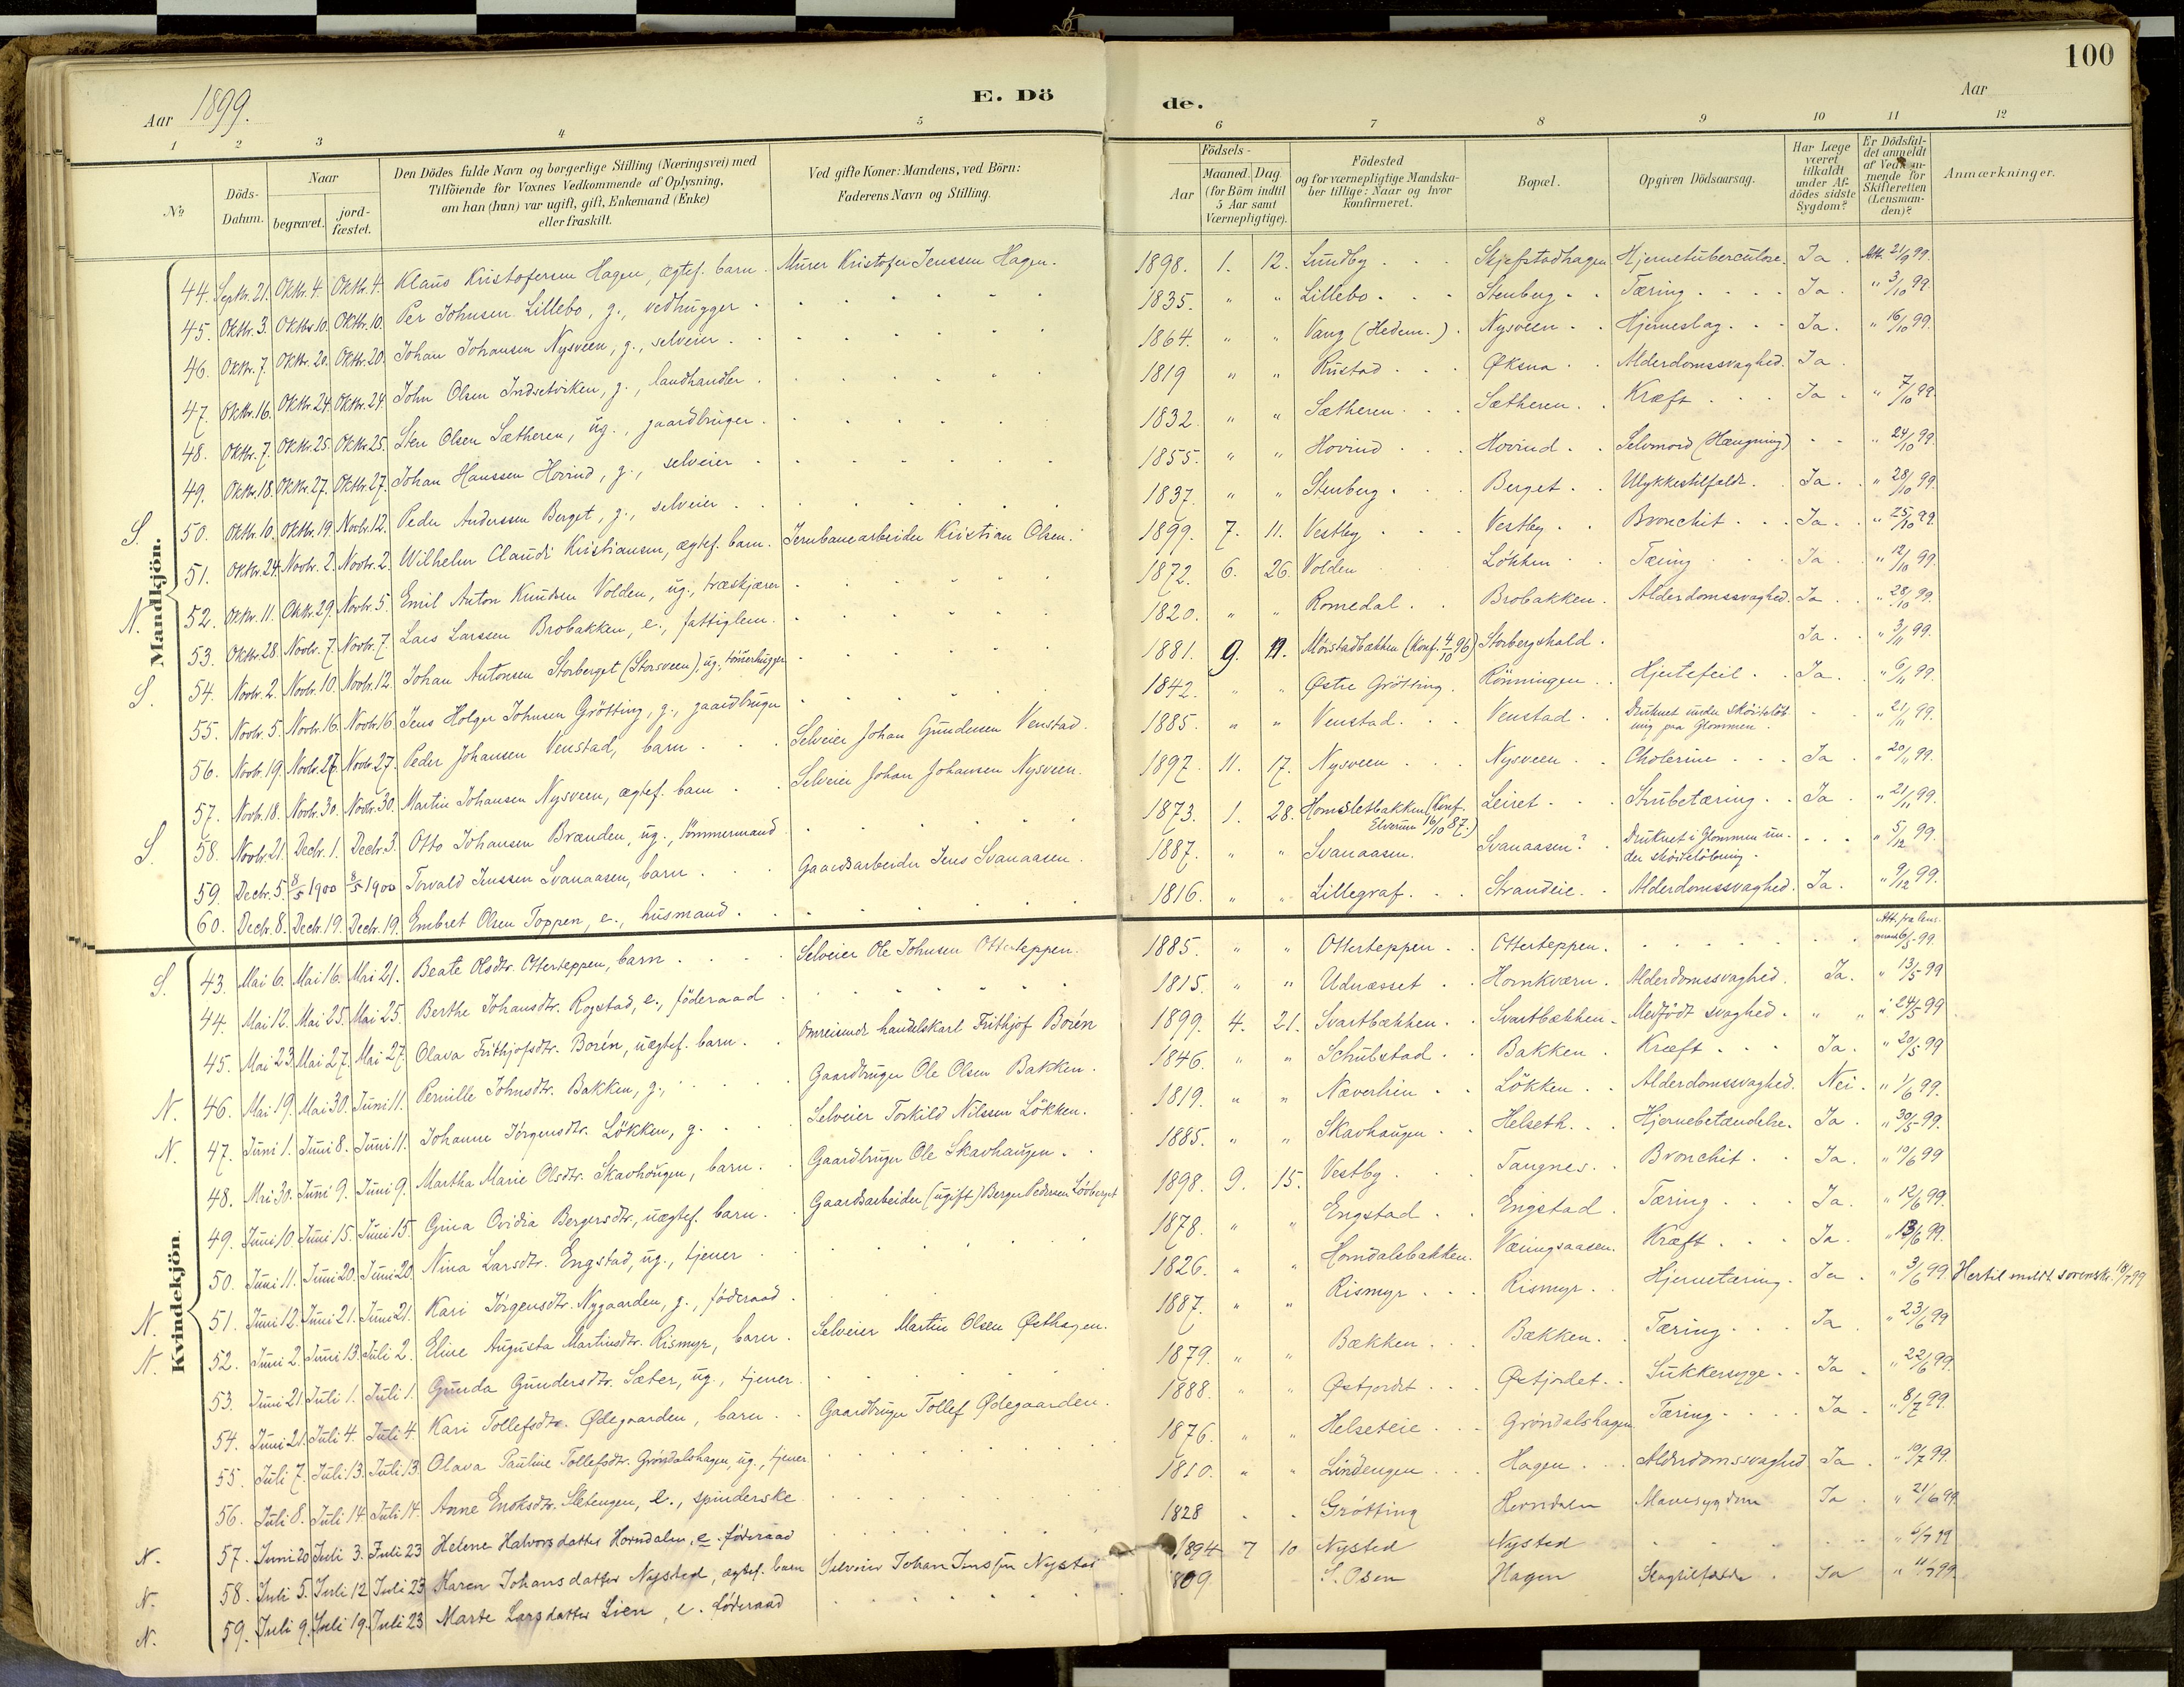 100
Aar 1899.
E. Döde.
Aar
1 2 3 4 5 6 7 8 9 10 11 12
No
Döds-Datum.
Naar begravet. jordfæstet.
Den Dödes fulde Navn og borgerlige Stilling (Næringsvei) med Tilföiende for Voxnes Vedkommende af Oplysning, om han (hun) var ugift, gift, Enkemand (Enke) eller fraskilt.
Ved gifte Koner: Mandens, ved Börn: Faderens Navn og Stilling.
Födsels- Aar Maaned. Dag. (for Börn indtil 5 Aar samt Værnepligtige).
Födested og for værnepligtige Mandskaber tillige: Naar og hvor konfirmeret.
Bopæl.
Opgiven Dödsaarsag.
Har Læge været tilkaldt under Afdödes sidste Sygdom?
Er Dödsfaldet anmeldt af Vedkommende for Skifteretten (Lensmanden)?
Anmærkninger.
Mandkjön.
44. Septr. 21. Oktbr. 4. Oktbr. 4. Klaus Kristofersen Hagen, ægtef. barn. Murer Kristofer Jenssen Hagen. 1898. 1. 12. Lundby Skjefstadhagen Hjernetuberculose. Ja. Att. 21/9 99.
45. Oktbr. 3. Oktbr. 10. Oktbr. 10. Per Johnsen Lillebo, g., vedhugger 1835. " " Lillebo Stenberg Tæring Ja. " 3/10 99.
46. Oktbr. 7. Oktbr. 20. Oktbr. 20. Johan Johansen Nysveen, g., selveier 1864. " " Vang (Hedem.) Nysveen Hjerneslag Ja. " 16/10 99.
47. Oktbr. 16. Oktbr. 24. Oktbr. 24. John Olsen Indsetviken, g., landhandler 1819 " " Rustad Øksna Alderdomssvaghed. Ja.
48. Oktbr. 7. Oktbr. 25. Oktbr. 25. Sten Olsen Sætheren, ug., gaardbruger 1832. " " Sætheren Sætheren Kræft Ja. " 7/10 99.
49. Oktbr. 18. Oktbr. 27. Oktbr. 27. Johan Hanssen Hovind, g., selveier 1855. " " Hovind Hovind Selvmord (Hængning) " 24/10 99.
S. 50. Oktbr. 10. Oktbr. 19. Novbr. 12. Peder Anderssen Berget, g., selveier 1837. " " Stenberg Berget Ulykkestilfælde. Ja. " 28/10 99.
51. Oktbr. 24. Novbr. 2. Novbr. 2. Wilhelm Claudi Kristiansen, ægtef. barn. Jernbanearbeider Kristian Olsen. 1899. 7. 11. Vestby Vestby Bronchit Ja. " 25/10 99.
N. 52. Oktbr. 11. Oktbr. 29. Novbr. 5. Emil Anton Knudsen Volden, ug., træskjærer 1872. 6. 26. Volden Lökken Tæring Ja. " 12/10 99.
53. Oktbr. 28. Novbr. 7. Novbr. 7. Lars Larssen Brobakken, e., fattiglem. 1820. " " Romedal Brobakken. Alderdomssvaghed. Ja. " 28/10 99.
S. 54. Novbr. 2. Novbr. 10. Novbr. 12. Johan Antonsen Storberget (Storsveen), ug., tömerhugger 1881. 9. 11. Mörstadbækken (Konf. 4/10 96) Storbergshald. Ja. " 3/11 99.
55. Novbr. 5. Novbr. 16. Novbr. 16. Jens Holger Johnsen Grötting, g., gaardbruger 1842. " " Østre Grötting. Rönningen Hjertefeil Ja. " 6/11 99.
56. Novbr. 19. Novbr. 27. Novbr. 27. Peder Johansen Venstad, barn Selveier Johan Gundersen Venstad. 1885. " " Venstad. Venstad Druknet under sköitelöbning paa Glommen. " 21/11 99.
57. Novbr. 18. Novbr. 30. Novbr. 30. Martin Johansen Nysveen, ægtef. barn Selveier Johan Johansen Nysveen. 1897. 11. 17. Nysveen Nysveen Cholerine Ja " 20/11 99.
S. 58. Novbr. 21. Decbr. 1. Decbr. 3. Otto Johansen Brænden, ug., tömmermand 1873. 1. 28. Homsletbakken (Konf. Elverum 16/10 87.) Leiret Strubetæring Ja " 21/11 99.
59. Decbr. 5. 8/5 1900 8/5 1900 Torvald Jenssen Svanaasen, barn Gaardsarbeider Jens Svanaasen. 1887. " " Svanaasen. Svanaasen? Druknet i Glommen under sköitelöbning. " 5/12 99.
60. Decbr. 8. Decbr. 19. Decbr. 19. Embret Olsen Toppen, e., husmand 1816. " " Lillegraf Strandeie Alderdomssvaghed. Ja. " 9/12 99.
Kvindekjön.
S. 43. Mai 6. Mai 16. Mai 21. Beate Olsdtr. Otterteppen, barn Selveier Ole Johnsen Otterteppen. 1885. " " Otterteppen Otterteppen. Att. fra lensmand 6/5 99.
44. Mai 12. Mai 25. Mai 25. Berthe Johansdtr. Rogstad, e., föderaad 1815. " " Udnæsset Hornkværn. Alderdomssvaghed. Ja. " 13/5 99
45. Mai 23. Mai 27. Mai 27. Olava Frithjofsdtr. Borén, uægtef. barn. Omreisende handelskarl Frithjof Borén 1899. 4. 21. Svartbækken Svartbækken Medfödt svaghed. " " " 24/5 99
N. 46. Mai 19. Mai 30. Juni 11. Pernille Johnsdtr. Bakken, g., Gaardbruger Ole Olsen Bakken. 1846. " " Schulstad Bakken Kræft Ja. " 20/5 99
N. 47. Juni 1. Juni 8. Juni 11. Johanne Jörgensdtr. Lökken, g. Selveier Torkild Nilssen Lökken. 1819. " " Næverlien Lökken Alderdomssvaghed. Nei. " 1/6 99.
48. Mai 30. Juni 9. Juni 9. Martha Marie Olsdtr. Skavhougen, barn. Gaardbruger Ole Skavhaugen. 1885. " " Skavhaugen Helseth. Hjernebetændelse. Ja " 30/5 99.
49. Juni 10. Juni 15. Juni 15. Gina Ovidia Bergersdtr., uægtef. barn. Gaardsarbeider (ugift) Berger Pedersen Lövberget 1898. 9. 15. Vestby. Tangnes Bronchit Ja. " 10/6 99
50. Juni 11. Juni 20. Juni 20. Nina Larsdtr. Engstad, ug., tjener 1878. " " Engstad Engstad. Tæring Ja. " 12/6 99.
N. 51. Juni 12. Juni 21. Juni 21. Kari Jörgensdtr. Nygaarden, g., föderaad. 1826. " " Horndalsbakken. Væringsaasen. Kræft Ja. " 13/6 99.
N. 52. Juni 2. Juni 13. Juli 2. Eline Augusta Martinsdtr. Rismyr, barn. Selveier Martin Olsen Østhagen. 1887. " " Rismyr Rismyr Hjernetæring. Ja " 3/6 99. Hertil meldt sorenskr. 18/7 99
53. Juni 21. Juli 1. Juli 1. Gunda Gundersdtr. Sæter, ug., tjener. 1879. " " Bækken Bækken. Tæring Ja " 23/6 99
54. Juni 21. Juli 4. Juli 4. Kari Tollefsdtr. Ødegaarden, barn. Gaardbruger Tollef Ødegaarden. 1888. " " Østjordet Østjordet. Sukkersyge Ja " 22/6 99.
55. Juli 7. Juli 13. Juli 13. Olava Pauline Tollefsdtr. Gröndalshagen, ug., tjener 1876. " " Helseteie Gröndalshagen Tæring Ja " 8/7 99.
56. Juli 8. Juli 14. Juli 14. Anne Enoksdtr. Sletengen, e., spinderske 1810. " " Lindengen Hagen Alderdomssvaghed Ja " 10/7 99.
N. 57. Juni 20 Juli 3. Juli 23 Helene Halvorsdatter Horndalen, e. föderaad 1828 Grötting Horndalen Mavesygdom Ja " 21/6 99
N. 58. Juli 5. Juli 12 Juli 23 Karen Johansdatter Nysted, ægtef. barn Selveier Johan Jenssen Nysted 1894 7 10 Nysted Nysted " 6/7 99
N. 59. Juli 9. Juli 19. Juli 23 Marte Larsdatter Lien, e. föderaad 1809 S. Osen Hagen Slagtilfælde Ja " 11/7 99.